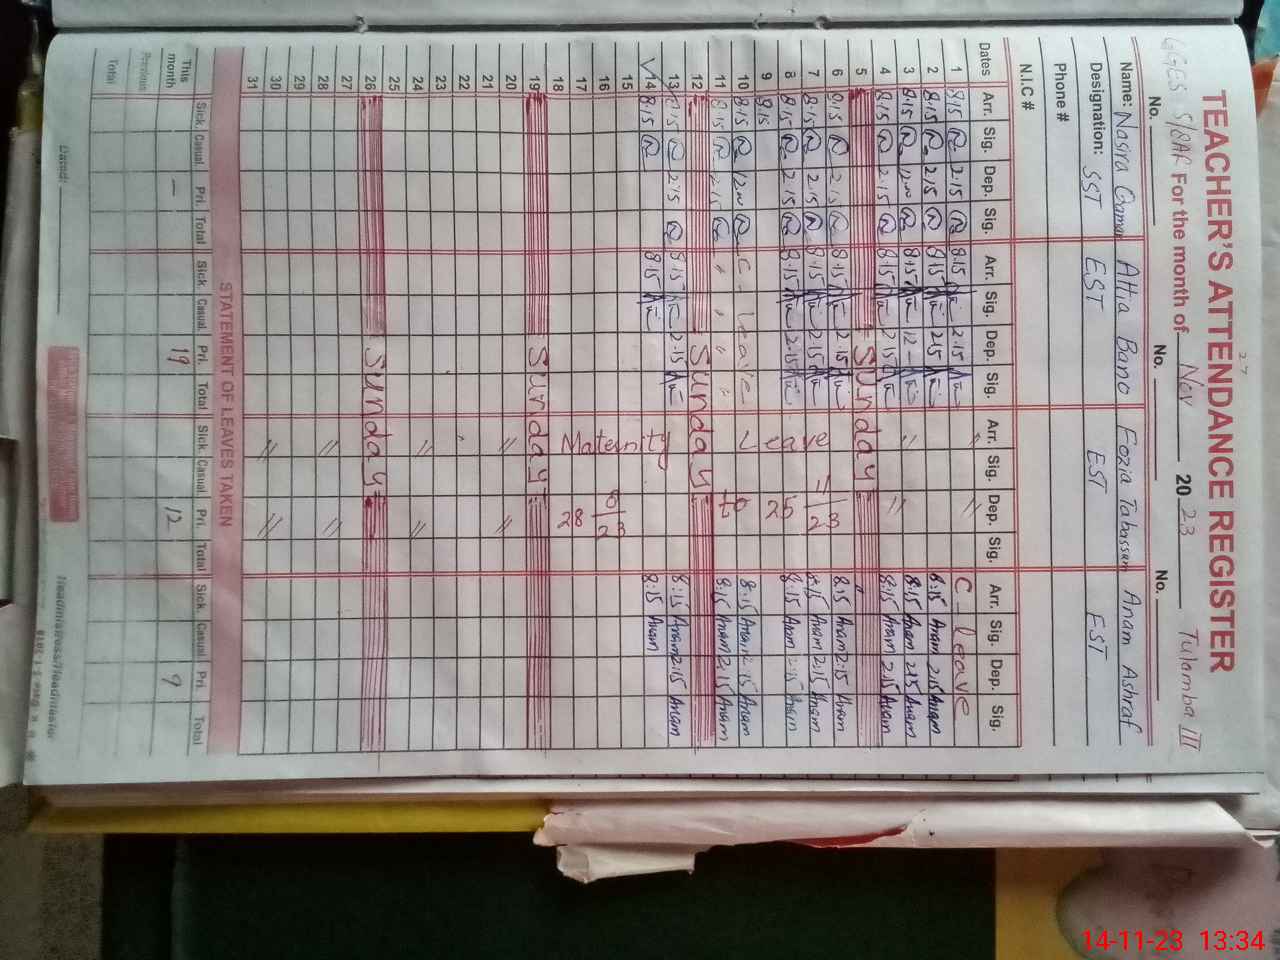 TEACHER'S ATTENDANCE REGISTER
GGES 5/8AR For the month of Nov 2023 Tulamba III
No. No. No.
Name: Nasira Qamar Attia Bano Fozia Tabassam Anam Ashraf
Designation: SST EST EST EST
Phone #
N.I.C #
Dates Arr. Sig. Dep. Sig. Arr. Sig. Dep. Sig. Arr. Sig. Dep. Sig. Arr. Sig. Dep. Sig.
1 8:15 2:15 8:15 2:15 " " C_leave
2 8:15 2:15 8:15 2:15 8:15 Anam 2:15 Anam
3 8:15 12:00 8:15 12 - " 8:15 Anam 2:15 Anam
4 8:15 2:15 8:15 2:15 " 8:15 Anam 2:15 Anam
5 Sunday
6 8:15 2:15 8:15 2:15 Leave 11/23 8:15 Anam 2:15 Anam
7 8:15 2:15 8:15 2:15 8:15 Anam 2:15 Anam
8 8:15 2:15 8:15 2:15 25 8:15 Anam 2:15 Anam
9 8:15
10 8:15 12:00 C- Leave to 8:15 Anam 2:15 Anam
11 8:15 2:15 " " " " 8:15 Anam 2:15 Anam
12 Sunday
13 8:15 2:15 8:15 2:15 8:15 Anam 2:15 Anam
14 8:15 8:15 Maternity 8:15 Anam
15
16 23
17
18 28
19 Sunday
20 " "
21
22
23
24 " "
25
26 Sunday
27
28 " "
29
30 " "
31
STATEMENT OF LEAVES TAKEN
Sick. Casual. Pri. Total Sick. Casual. Pri. Total Sick. Casual. Pri. Total Sick. Casual Pri. Total
This month — 19 12 9
Previous
Total
Dated: Headmistress/Headmaster
14-11-23 13:34